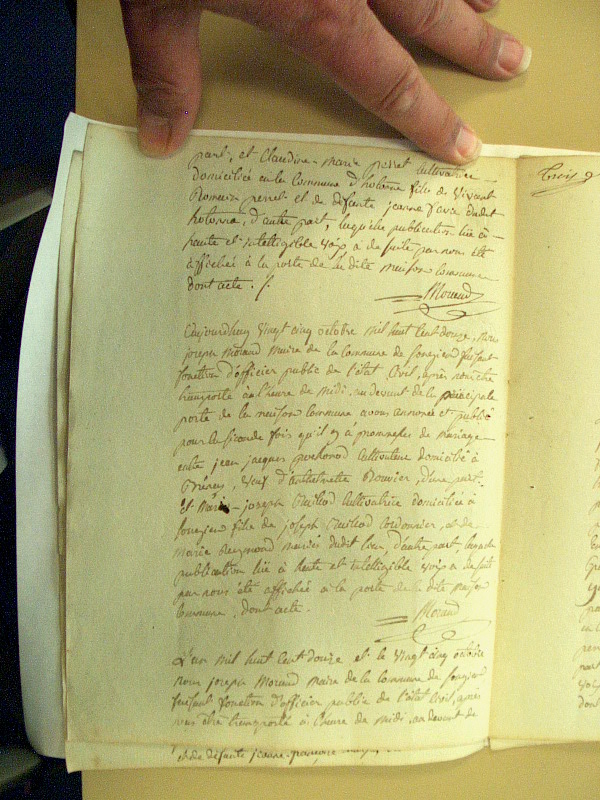 part, et Claudine-Marie perret Cultivatrice
domiciliée en la Commune d'holonne fille de Vincent
Romain perret et de défunte jeanne favre dudit
holonna, d'autre part, laquelle publication lüe à
haute et intelligible Voix a de suite par nous été
affichée à la porte de la dite maison commune
dont acte ./.
Moraud
Aujourdhuy Vingt cinq octobre mil huit Cent douze, Nous
joseph Moraud Maire de la Commune de fonction faisant
fonction d'officier public de l'état Civil, après nous être
transporté à l'heure de Midi, au devant de la principale
porte de la maison Commune avons annoncé et publié
pour la seconde fois qu'il y à promesses de Mariage
entre jean jacques Cultivateur domicilié à
Veuf d'anthelmette Bouvier, d'une part.
Et Marie-joseph Cultivatrice domiciliée à
fille de joseph Cordonnier, et de
Marie Reymond mariés dudit lieu, d'autre part, laquelle
publication lüe à haute et intelligible Voix a de suite
par nous été affichée à la porte de la dite maison
Commune, dont acte.
Moraud
L'an mil huit Cent douze et le Vingt cinq octobre
nous joseph Moraud maire de la Commune de
faisant fonction d'officier public de l'état Civil, après
nous être transporté à l'heure de Midi, au devant de
et de défunte jeanne-
trois